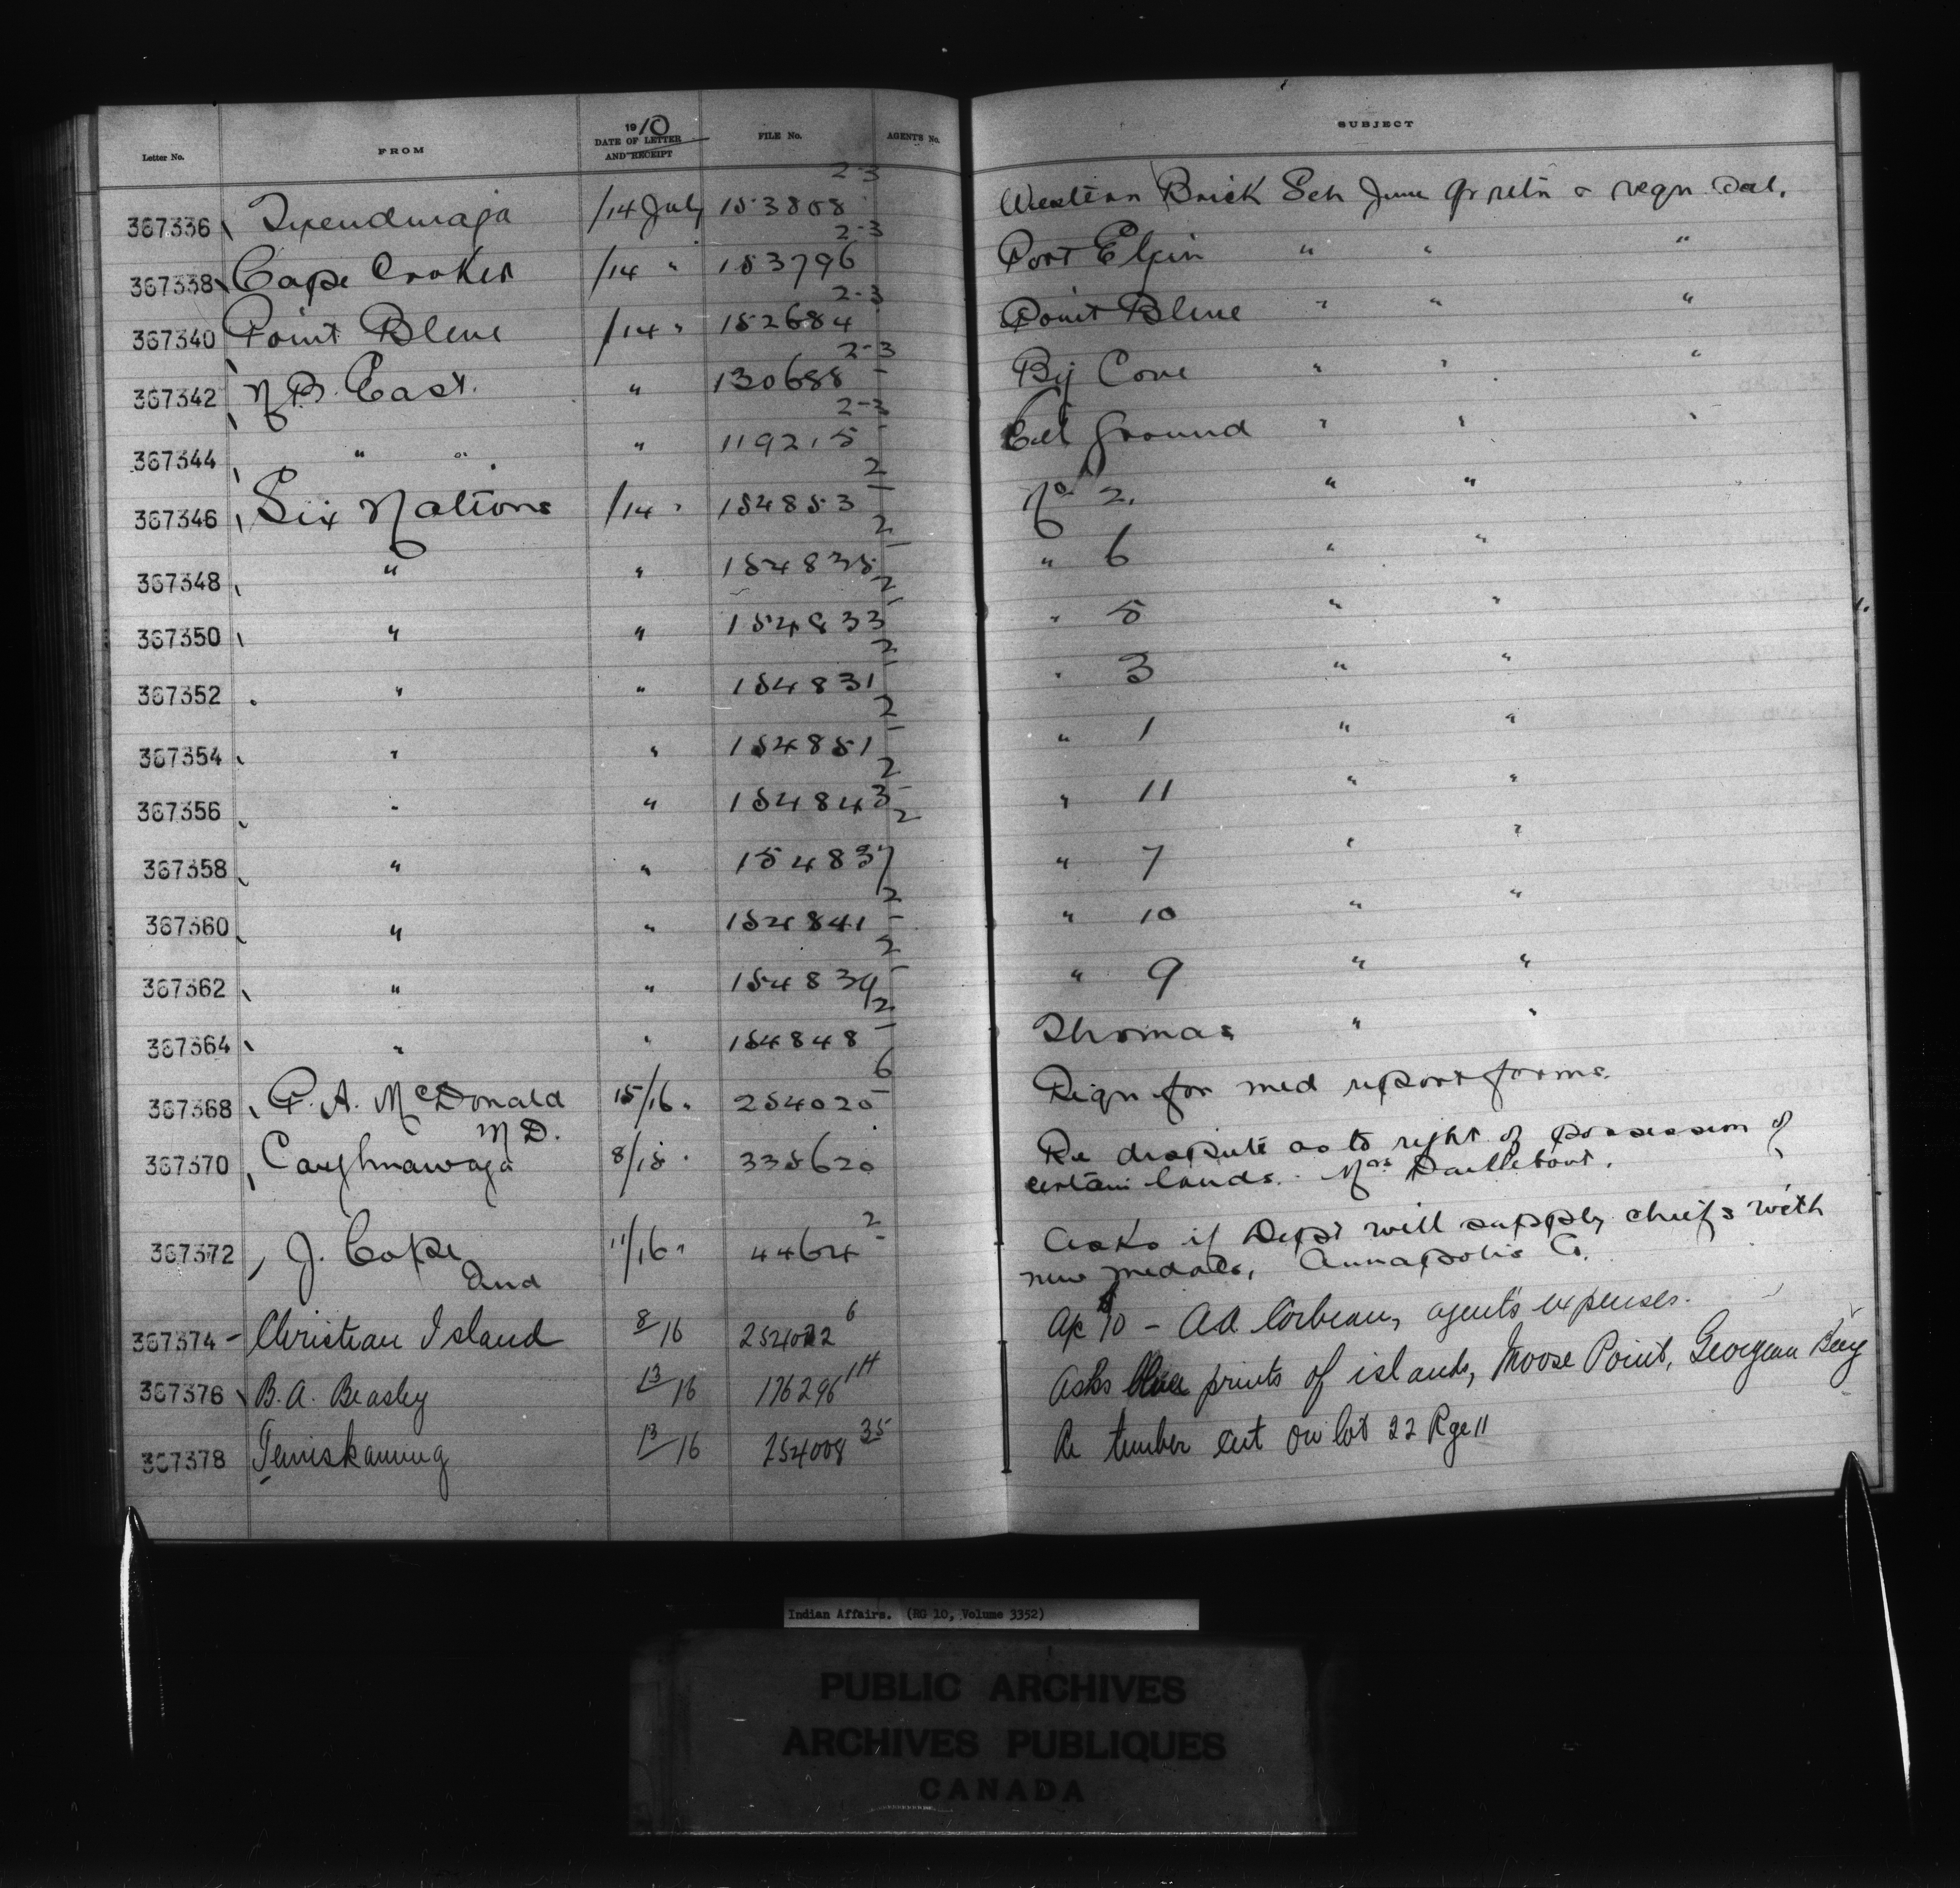 Letter No. FROM 1910 DATE OF LETTER AND RECEIPT FILE No. AGENTS No. SUBJECT
367336 Tyendinaga /14 July 153808 2-3 Western Brick Sch June qr retn & reqn Dal.
367338 Cape Croker /14 " 153796 2-3 Port Elgin " " "
367340 Point Bleue /14 " 152684 2-3 Point Bleue " " "
367342 N.B. East. " 130688 2-3 Big Cove " " "
367344 " " " 119215 2-3 Eel Ground " " "
367346 Six Nations /14 " 154853 2 No 2. " "
367348 " " 154835 2 " 6 " "
367350 " " 154833 2 " 5 " "
367352 " " 154831 2 " 3 " "
367354 " " 154851 2 " 1 " "
367356 " " 154843 2 " 11 " "
367358 " " 154837 2 " 7 " "
367360 " " 154841 2 " 10 " "
367362 " " 154839 2 " 9 " "
367364 " " 154848 2 Thomas " "
367368 P. A. McDonald 15/16 " 254025 6 Reqn for med report forms.
M D.
367370 Caughnawaga 8/15 " 335620 Re dispute as to right of possession of
certain lands. Mrs Daillebout.
367372 J. Cope 11/16 " 4464 2 Asks if Dept will supply chiefs with
Ind new medals, Annapolis Co.
367374 - Christian Island 8/16 254022 6 A/c 10 - A A Corbeau, agent's expenses.
367376 B. A. Beasley 13/16 176296 1H Asks blue prints of islands, Moose Point, Georgian Bay
367378 Temiskaming 13/16 254008 35 Re timber cut on lot 22 Rge 11
Indian Affairs. (RG 10, Volume 3352)
PUBLIC ARCHIVES
ARCHIVES PUBLIQUES
CANADA